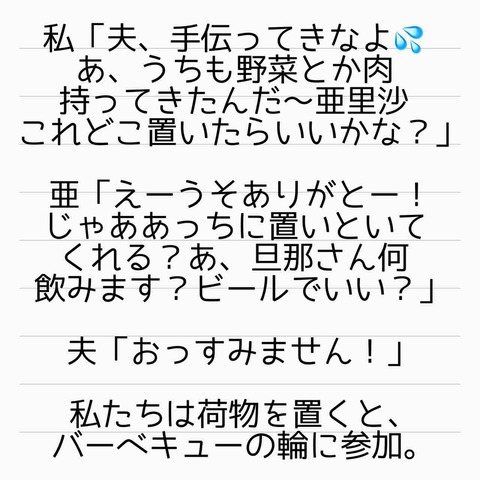 私「夫、手伝ってきなよ💦
あ、うちも野菜とか肉
持ってきたんだ〜亜里沙
これどこ置いたらいいかな？」
亜「えーうそありがとー！
じゃああっちに置いといて
くれる？あ、旦那さん何
飲みます？ビールでいい？」
夫「おっすみません！」
私たちは荷物を置くと、
バーベキューの輪に参加。